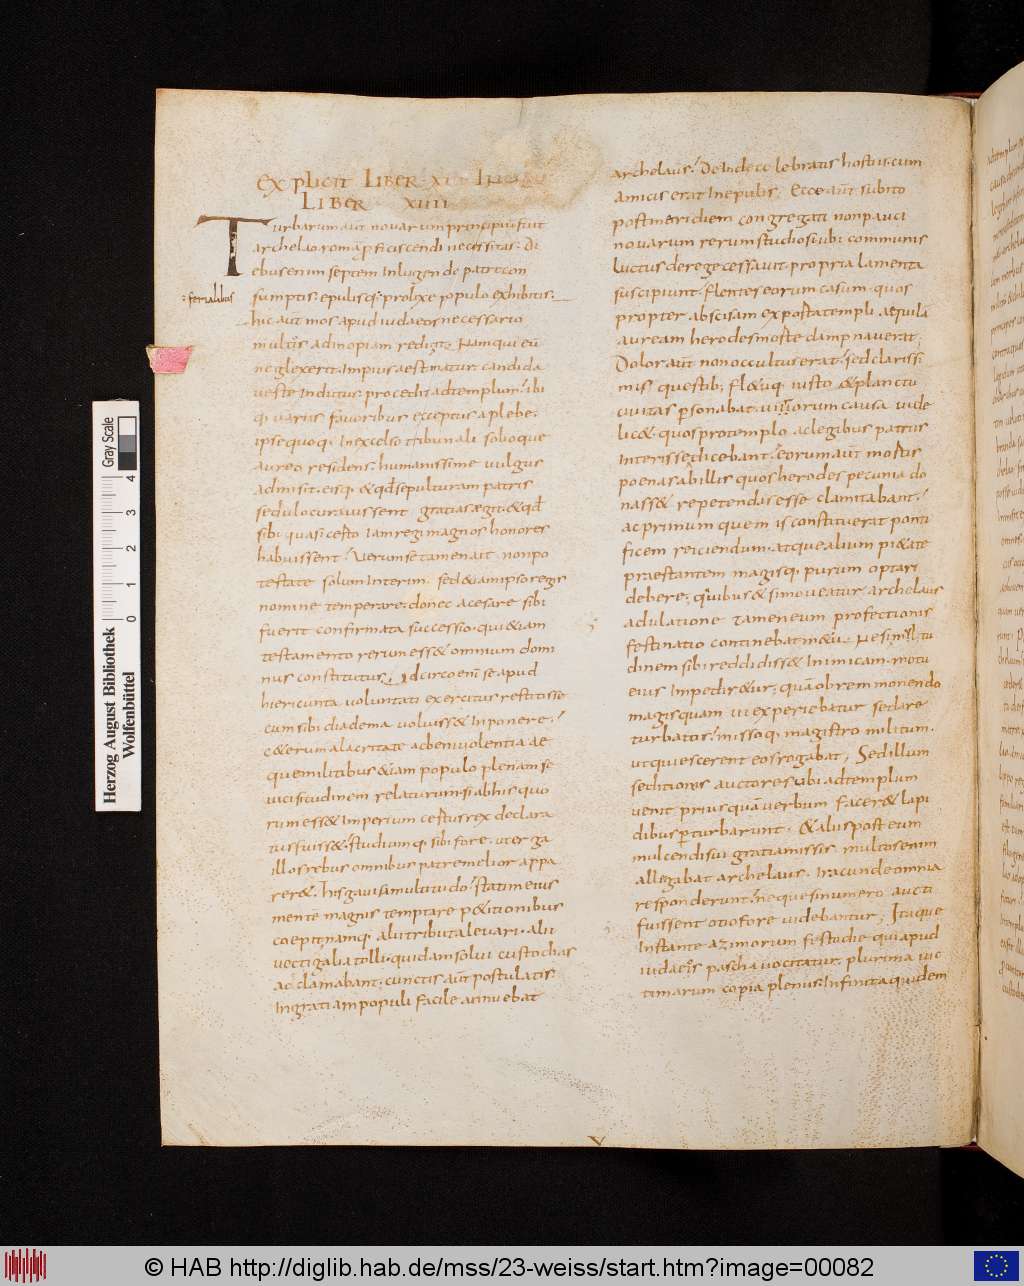 EXPLICIT LIBER XI
LIBER XIIII
Turbarum aut novarum principiũ fuit
archelao romã ꝓficiscendi necessitas. Di
ebus enim septem inlugendo patre con
: ferialibus
sumptis. epulisq; prolixe populo exhibitis.
hic aut mos apud iudaeos necessario
multis adinopiam redigit. Namqui eũ
neglexerit. Impius aestimatur. candida
veste indutus procedit adtemplum. ibi
q; variis favoribus exceptus aplebe.
ipsequoq; inexcelso tribunali solioque
aureo residens. humanissime vulgus
admisit. eisq; &qđ sepulturam patris
sedulo curavissent gratias aegit. &qđ
sibi quasi certo iam regi magnos honores
habuissent. Verum se tamen ait. nonpo
testate solum interim. sed&iam ipso regis
nomine temperare. donec acesare sibi
fuerit confirmata successio. qui&iam
testamento rerum ess& omnium domi
nus constitutus; Idcirco enĩ se apud
hiericunta voluntati exercitus restitisse
cum sibi diadema voluiss& inponere.
c&erum alacritate acbenivolentia ae
que militibus &iam populo plenam se
vicissitudinem relaturum. si abhis quo
rum ess& imperium certus rex declara
tus fuiss&. studiumq; sibi fore. ut erga
illos rebus omnibus patre melior appa
rer&. his gavisa multitudo. statim eius
mente magnis temptare p&itionibus
coepit. namq; alii tributa levari. alii
vectigalia tolli. quidam solvi custodias
ac clamabant. cunctis aũt postulatis
ingratiam populi facile annuebat
archelaus. Deinde celebratis hostiis. cum
amicis erat inepulis; Ecce aũt subito
postmeridiem congregati nonpauci
novarum rerum studiosi. ubi communis
luctus derege cessavit. propria lamenta
suscipiunt. flentes eorum casum. quos
propter abscisam exporta templi. aequilã
auream herodes morte dampnaverat;
Dolor aũt non occultus erat. sed clariss
mis questib; fl&uq; iusto &planctu
civitas ꝑsonabat. virorum causa vide
lic&. quos protemplo. aclegibus patriis
interisse dicebant. eorum aũt mortis
poenas abillis quos herodes pecunia do
nass& repetendas esse clamitabant.
acprimum quem is constituerat ponti
ficem reiciendum. atque alium pi&ate
praestantem magisq; purum optari
debere; quibus &si moveatur archelaus
adulatione tamen eum profectionis
festinatio continebat
dinem sibi reddidiss& inimicam. motu
eius impedir&ur; quãobrem monendo
magis quam vi experiebatur sedare
turbatos. missoq; magistro militum.
ut quiescerent eos rogabat; Sed illum
seditionis auctores ubi adtemplum
venit prius quã verbum facer& lapi
dibus ꝑturbarunt. &alios post eum
mulcendi sui gratia missis. multos enim
allegabat archelaus. iracunde omnia
responderunt. neque sinumero aucti
fuissent otio fore videbantur; Itaque
instante azimorum festo die. qui apud
iudaeos pascha vocitatur. plurima vic
timarum copia plenus. infinita quidem
V
Herzog August Bibliothek
Wolfenbüttel
Gray Scale
0 1 2 3 4
© HAB http://diglib.hab.de/mss/23-weiss/start.htm?image=00082